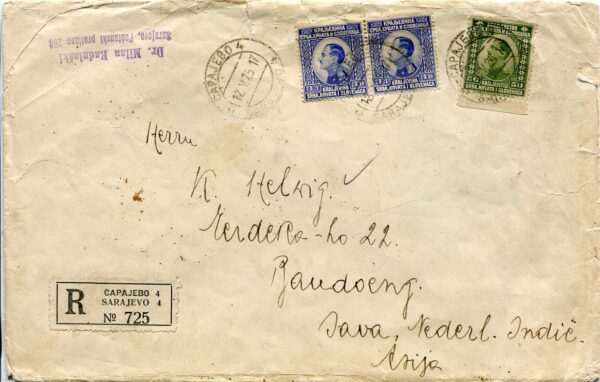 Dr. Milan Radulaški
Sarajevo, Poštanski pretinac 268
САРАЈЕВО 4
12.V.25. 17
КРАЉЕВИНА
СРБА,ХРВАТА И СЛОВЕНАЦА
КРАЉЕВИНА
СРБА,ХРВАТА И СЛОВЕНАЦА
KRALJEVINA
SRBA,HRVATA I SLOVENACA
KRALJEVINA
SRBA,HRVATA I SLOVENACA
SRBA,HRVATA I SLOVENACA
Herrn
K Helwig.
Merdeka-ho 22.
Bandoeng.
Java, Nederl. Indič.
Asija
R
САРАЈЕВО 4
SARAJEVO 4
№ 725